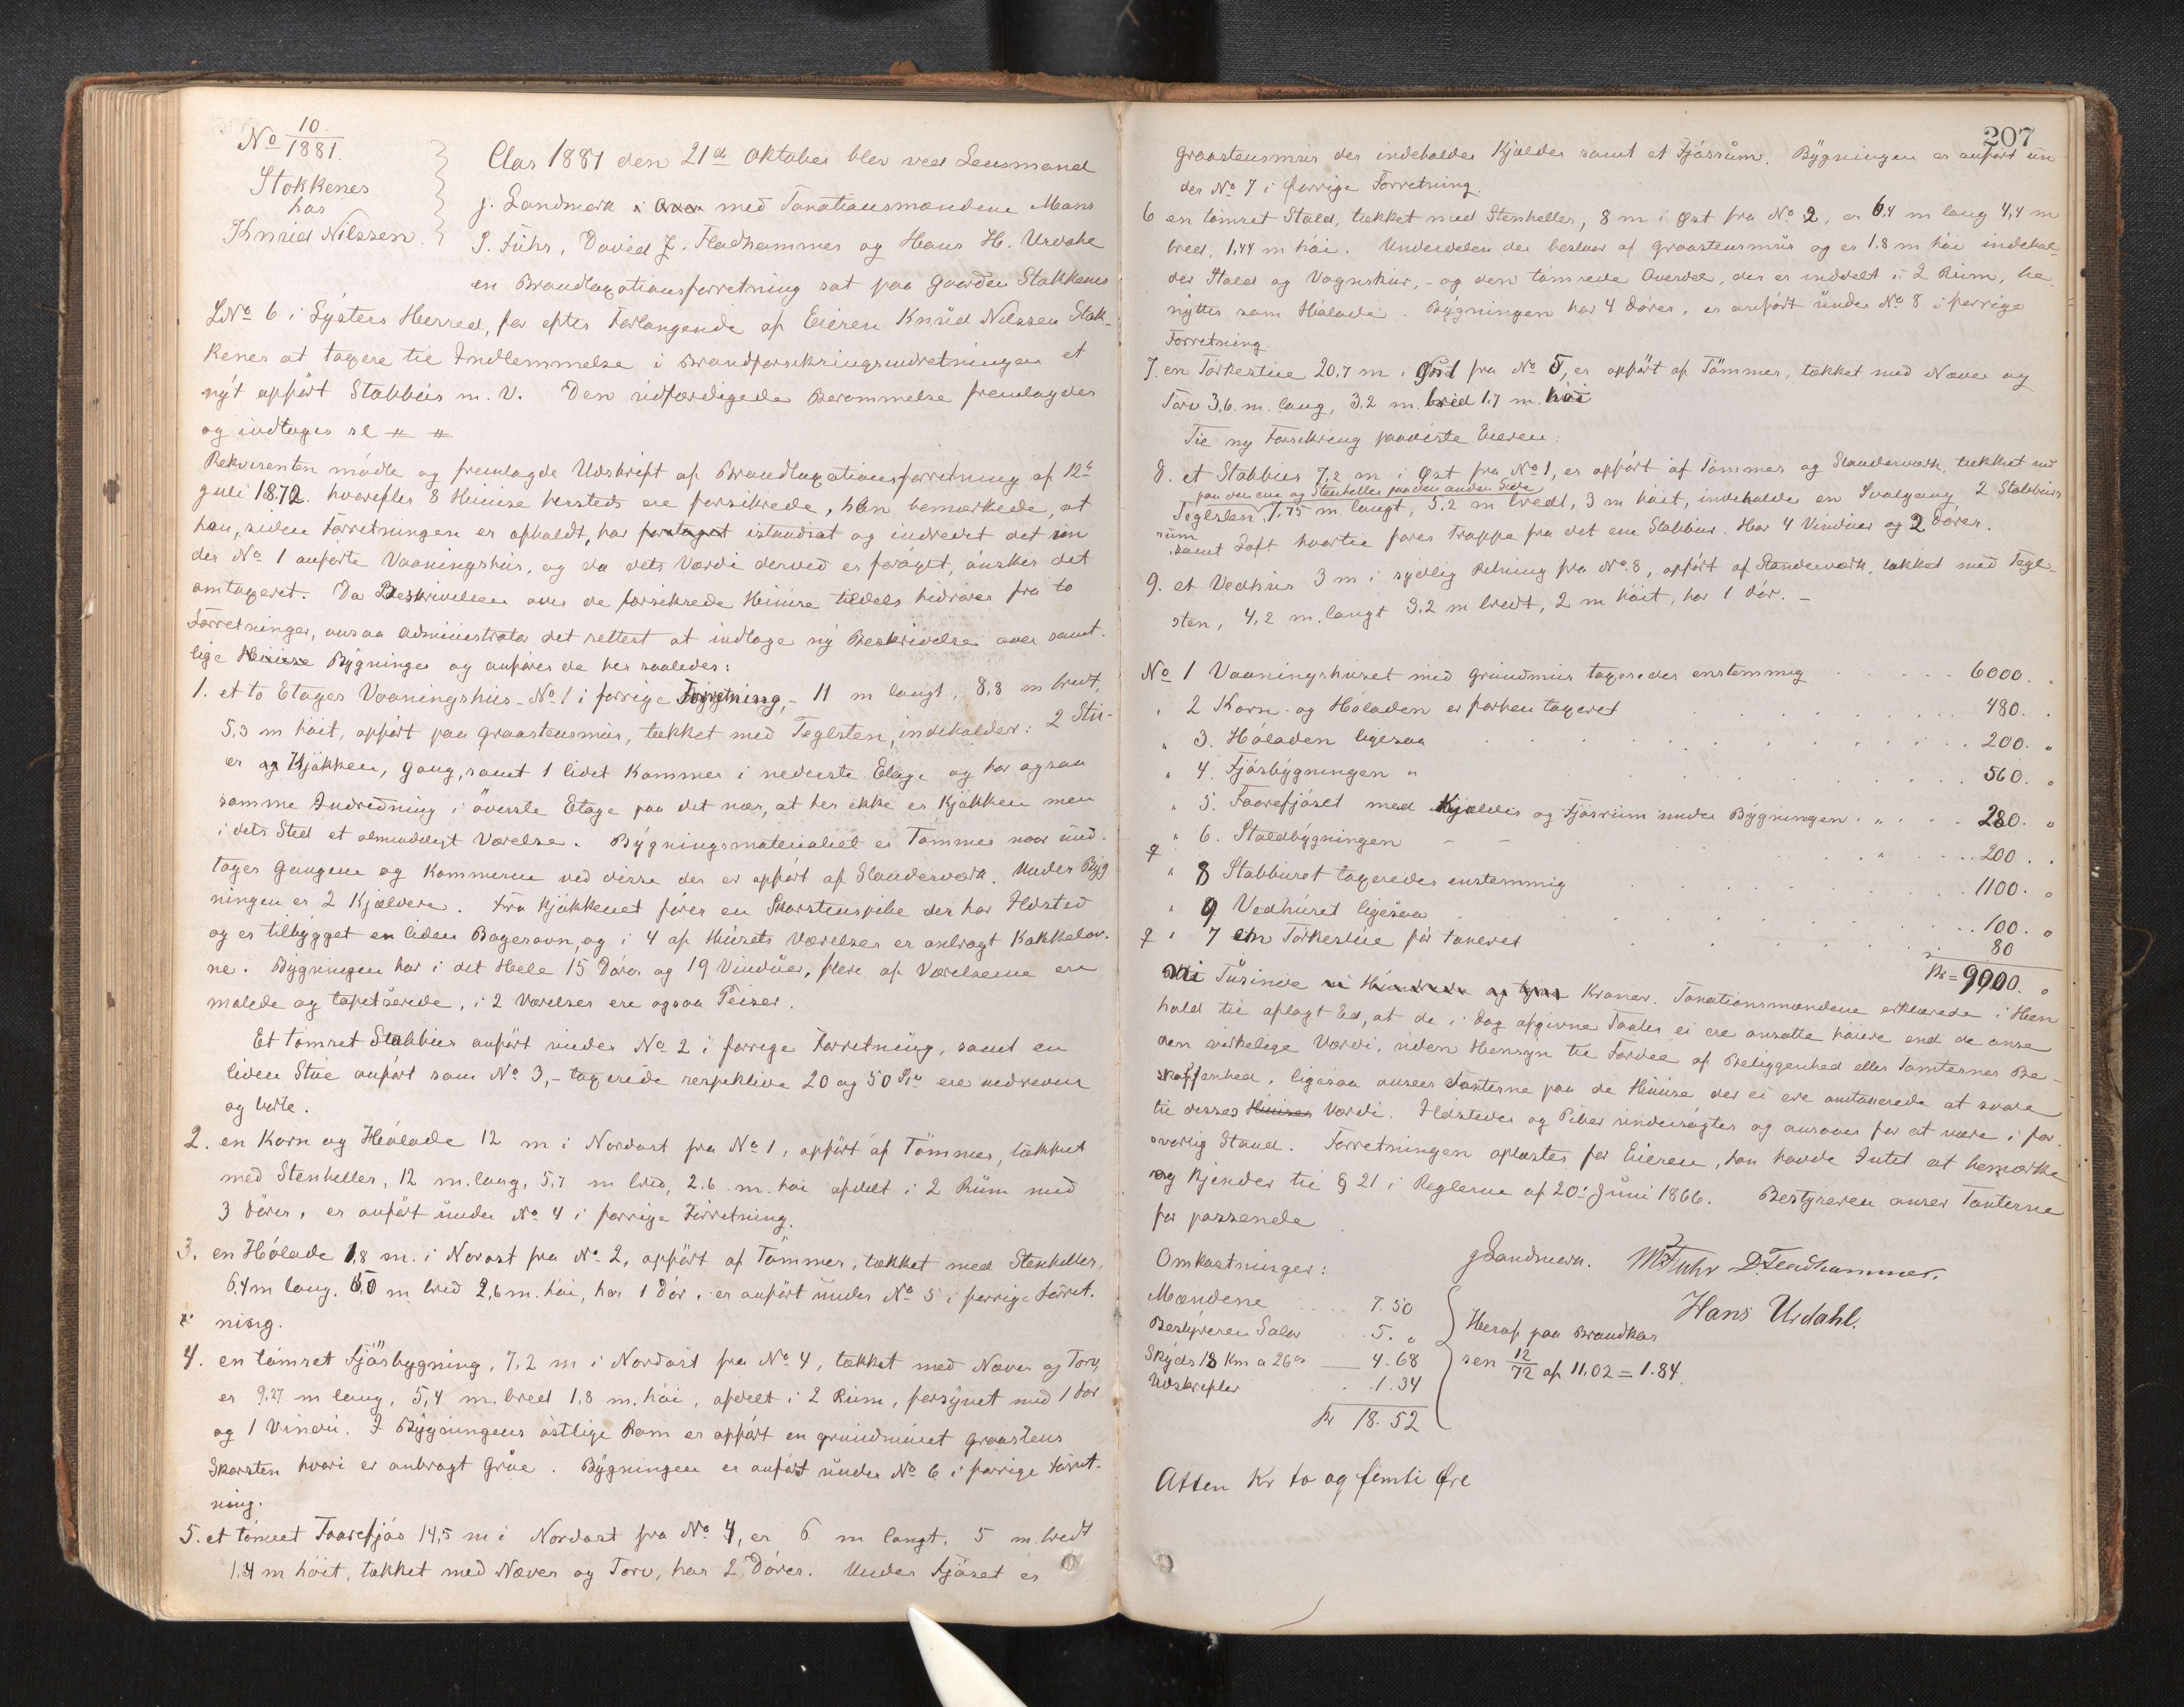 No 10/1881.
Stokkenes
hos
Knud Nilssen.
Aar 1881 den 21de Oktober blev ved Lensmand
J. Landmark i Over med Taxationsmændene Mons
P. Fuhr, David J. Fladhammer og Hans H. Urdahl
en Brandtaxationsforretning sat paa Gaarden Stokkenes
LNo 6 i Lysters Herred, for efter Forlangende af Eieren Knud Nilssen Stok-
kenes at taxere til Indlemmelse i Brandforsikringsindretningen et
nyt opført Stabbur m. V. Den udfærdigede Berammelse fremlagdes
og indtages sl # #
Rekvirenten mødte og fremlagde Udskrift af Brandtaxationsforretning af 12te
Juli 1872. hvorefter 8 Huuse hersteds ere forsikrede, han bemærkede, at
han, siden Forretningen er afholdt, har foretaget istandsat og indredet det un
der No 1 anførte Vaaningshus, og da dets Værdi derved er forøget, ønskes det
omtaxeret. Da Beskrivelsen over de forsikrede Huuse tildels hidrører fra to
Forretninger, ansaa Administrator det rettest at indtage ny Beskrivelse over samt-
lige Huuse Bygninger og anføres de her saaledes:
1. et to Etages Vaaningshus - No 1 i forrige Forretning, - 11 m langt, 8,8 m bredt,
5,3 m høit, opført paa Graastensmur, tækket med Teglsten, indeholder: 2 Stu-
er og Kjøkken, Gang, samt 1 lidet Kammer i nederste Etage og har ogsaa
samme Indredning i øverste Etage paa det nær, at her ikke er Kjøkken men
i dets Sted et almindeligt Værelse. Bygningsmaterialiet er Tømmer naar und-
tages Gangene og Kammerne ved disse der er opført af Standerværk. Under Byg
ningen er 2 Kjældere. Fra Kjøkkenet fører en Skorstenspibe der har Ildsted
og er tilbygget en liden Bagerovn, og i 4 af Husets Værelser er anbragt Kakkelov-
ne. Bygningen har i det Hele 15 Døre og 19 Vinduer, flere af Værelserne ere
malede og tapetserede, i 2 Værelser ere ogsaa Peiser.
Et tømret Stabbur anført under No 2 i forrige Forretning, samt en
liden Stue anført som No 3, - taxerede respektive 20 og 50 Spd ere nedrevne
og borte.
2. en Korn og Høladе 12 m i Nordost fra No 1, opført af Tømmer, tækket
med Stenheller, 12 m. lang, 5,7 m bred, 2.6 m. høi afdelt i 2 Rum med
3 Døre, er anført under No 4 i forrige Forretning.
3. en Hølade 1,8 m. i Norost fra No 2, opført af Tømmer, tækket med Stenheller,
6,4 m lang, 5,0 m bred 2,6 m. høi, har 1 Dør, er anført under No 5 i forrige Forret-
ning.
4. en tømret Fjøsbygning, 7,2 m i Nordost fra No 4, tækket med Næver og Torv,
er 9,27 m lang, 5,4 m. bred 1,8 m. høi, afdelt i 2 Rum, forsynet med 1 Dør
og 1 Vindu. I Bygningens østlige Rom er opført en grundmuret Graastens
Skorsten hvori er anbragt Grue. Bygningen er anført under No 6 i forrige Forret-
ning.
5. et tømret Faarefjøs 14,5 m i Nordost fra No 4, er 6 m langt, 5 m. bredt
1,4 m høit, tækket med Næver og Torv, har 2 Døre. Under Fjøset er
207
Graastensmur der indeholder Kjælder samt et Fjøsrum. Bygningen er anført un
der No 7 i forrige Forretning.
6 en tømret Stald, tækket med Stenheller, 8 m i Øst fra No 2, er 6,4 m lang 4,4 m
bred, 1,44 m høi. Underdelen der bestaar af Graastensmur og er 1.8 m høi indehol-
der Stald og Vognskur, - og den tømrede Overdel, der er inddelt i 2 Rum, be
nyttes som Hølade. Bygningen har 4 Døre, er anført under No 8 i forrige
Forretning.
7. en Tørkestue 20.7 m i Øst fra No 5, er opført af Tømmer, tækket med Næver og
Torv 3,6 m. lang, 3.2 m. bred 1.7 m. høi
Til ny Forsikring paaviste Eieren:
8. et Stabbur 7,2 m i Øst fra No 1, er opført af Tømmer og Standerværk, tækket med
paa den ene og Stenheller paa den anden Side
Teglsten, 7,75 m langt, 5,2 m bredt, 3 m høit, indeholder en Svalgang, 2 Stabburs
rum
samt Loft hvortil fører Trappe fra det ene Stabbur. Har 4 Vinduer og 2 Døre.
9. et Vedhus 3 m i sydlig Retning fra No 8, opført af Standerværk, tækket med Tegl-
sten, 4,2 m. langt 3,2 m bredt, 2 m høit, har 1 Dør. -
No 1 Vaaningshuset med Grundmur taxeredes enstemmig 6000.
" 2 Korn- og Høladen er forhen taxeret 480.
" 3. Høladen ligesaa 200.
" 4. Fjøsbygningen " 560.
" 5. Faarefjøset med Kjælder og Fjøsrum under Bygningen " 280.
" 6. Staldbygningen " 200.
" 8 Stabburet taxeredes enstemmig 1100.
" 9 Vedhuset ligesaa 100.
" 7 en Tørkestue før taxeret 80
Kr = 9000.
ni Tusinde Kroner. Taxationsmændene erklærede i Hen
hold til aflagt Ed, at de i Dag afgivne Taxter ei ere ansatte høiere end de anse
den virkelige Værdi, uden Hensyn til Fordel af Beliggenhed eller Tomternes Be-
skaffenhed, ligesaa ansees Taxterne paa de Huuse der ei ere omtaxerede at svare
til disses Huuses Værdi. Ildsteder og Piber undersøgtes og ansaaes for at være i for-
svarlig Stand. Forretningen oplæstes for Eieren, han havde Intet at bemærke
og kjender til § 21 i Reglerne af 20de Juni 1866. Bestyreren anser Taxterne
for passende
J Landmark. M P Fuhr D. Fladhammer.
Hans Urdahl.
Omkostninger:
Mændene 7.50
Bestyreren Salær 5. "
Skyds 18 Km a 26 øre 4.68
Udskrifter 1.34
Kr 18.52
Heraf paa Brandkas
sen 12/72 af 11.02 = 1.84.
Atten Kr to og femti Øre